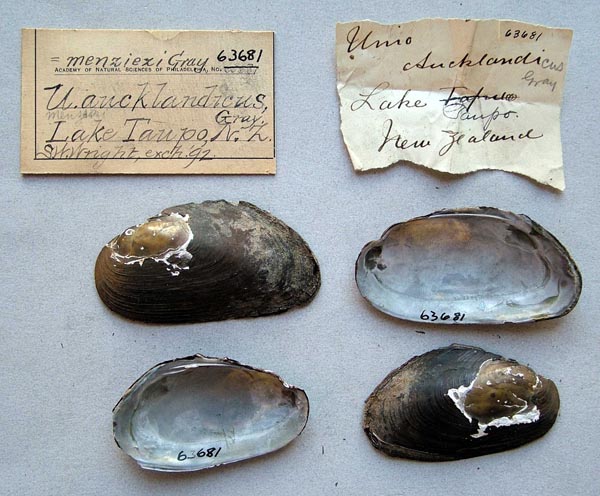 = menziezi Gray 63681
ACADEMY OF NATURAL SCIENCES OF PHILADELPHIA, NO.
U. aucklandicus,
menziezi Gray.
Lake Taupo, N. Z.
S.W. Wright, exch. '92.
63681
Unio
Aucklandicus
Gray
Lake
Taupo.
New Zealand
63681
63681